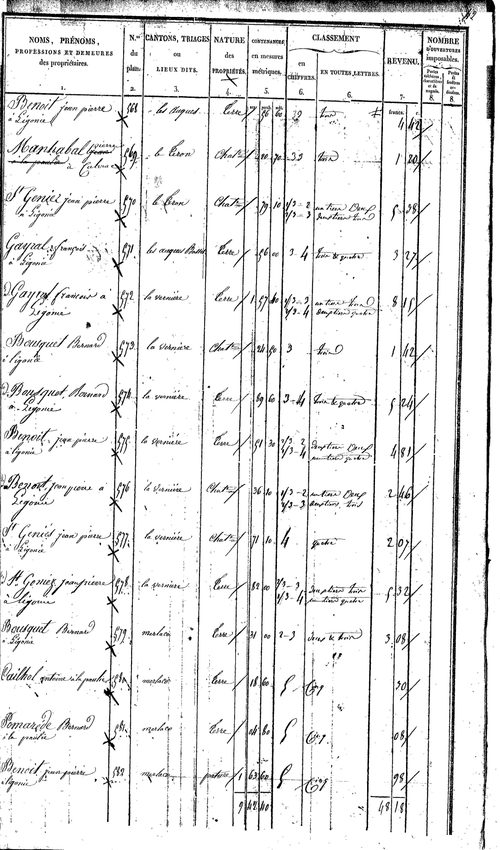 NOMS, PRÉNOMS,
PROFESSIONS ET DEMEURES
des propriétaires.
N.os du plan.
CANTONS, TRIAGES
ou
LIEUX DITS.
NATURE
des
PROPRIÉTÉS.
CONTENANCES
en mesures
métriques.
CLASSEMENT
en
CHIFFRES.
EN TOUTES LETTRES.
REVENU.
NOMBRE
D'OUVERTURES
imposables.
1. 2. 3. 4. 5. 6. 6. 7. 8. 8.
francs. c.
Benoit jean pierre 568 Terre 56 60 4 42
à Ligonie
569 le Ciron Chat 20 70 33 trois 1 20
St Geniez jean pierre 570 le Ciron Chat 79 10 1/3-2 un tiers Deux 5 38
à Ligonie 2/3-3 deux tiers trois
Gayral françois 571 Terre 56 00 3-4 trois & quatre 3 27
à Ligonie
d. Gayral françois à 572 la verniere Terre 1 57 40 un tiers trois 8 15
Ligonie 2/3-4 deux tiers quatre
Bousquet Bernard 573 la verniere Chat 24 50 3 trois 1 42
à Ligonie
d. Bousquet Bernard 574 la verniere Terre 89 60 3-4 trois & quatre 5 24
à Ligonie
Benoit jean pierre 575 la verniere Terre 51 30 2/3-2 deux tiers Deux 4 81
à Ligonie 1/3-4 un tiers quatre
d. Benoit jean pierre à 576 la verniere Chat 36 10 1/3-2 un tiers Deux 2 46
Ligonie 2/3-3 deux tiers trois
St Geniez jean pierre 577 la verniere Chat 71 10 4 quatre 2 07
à Ligonie
d. St Geniez jean pierre 578 la verniere Terre 82 00 2/3-3 deux tiers trois 5 32
à Ligonie 1/3-4 un tiers quatre
Bousquet Bernard 579 merlaco Terre 31 00 2-3 deux & trois 3 08
à Ligonie
Cailhol antoine à la prade 580 merlaco Terre 18 60 5 Cinq 30
Pomarède Bernard 581 merlaco Terre 04 80 5 Cinq 08
Benoit jean pierre 582 merlaco pature 1 63 60 5 Cinq 98
à Ligonie
9 42 40 48 18